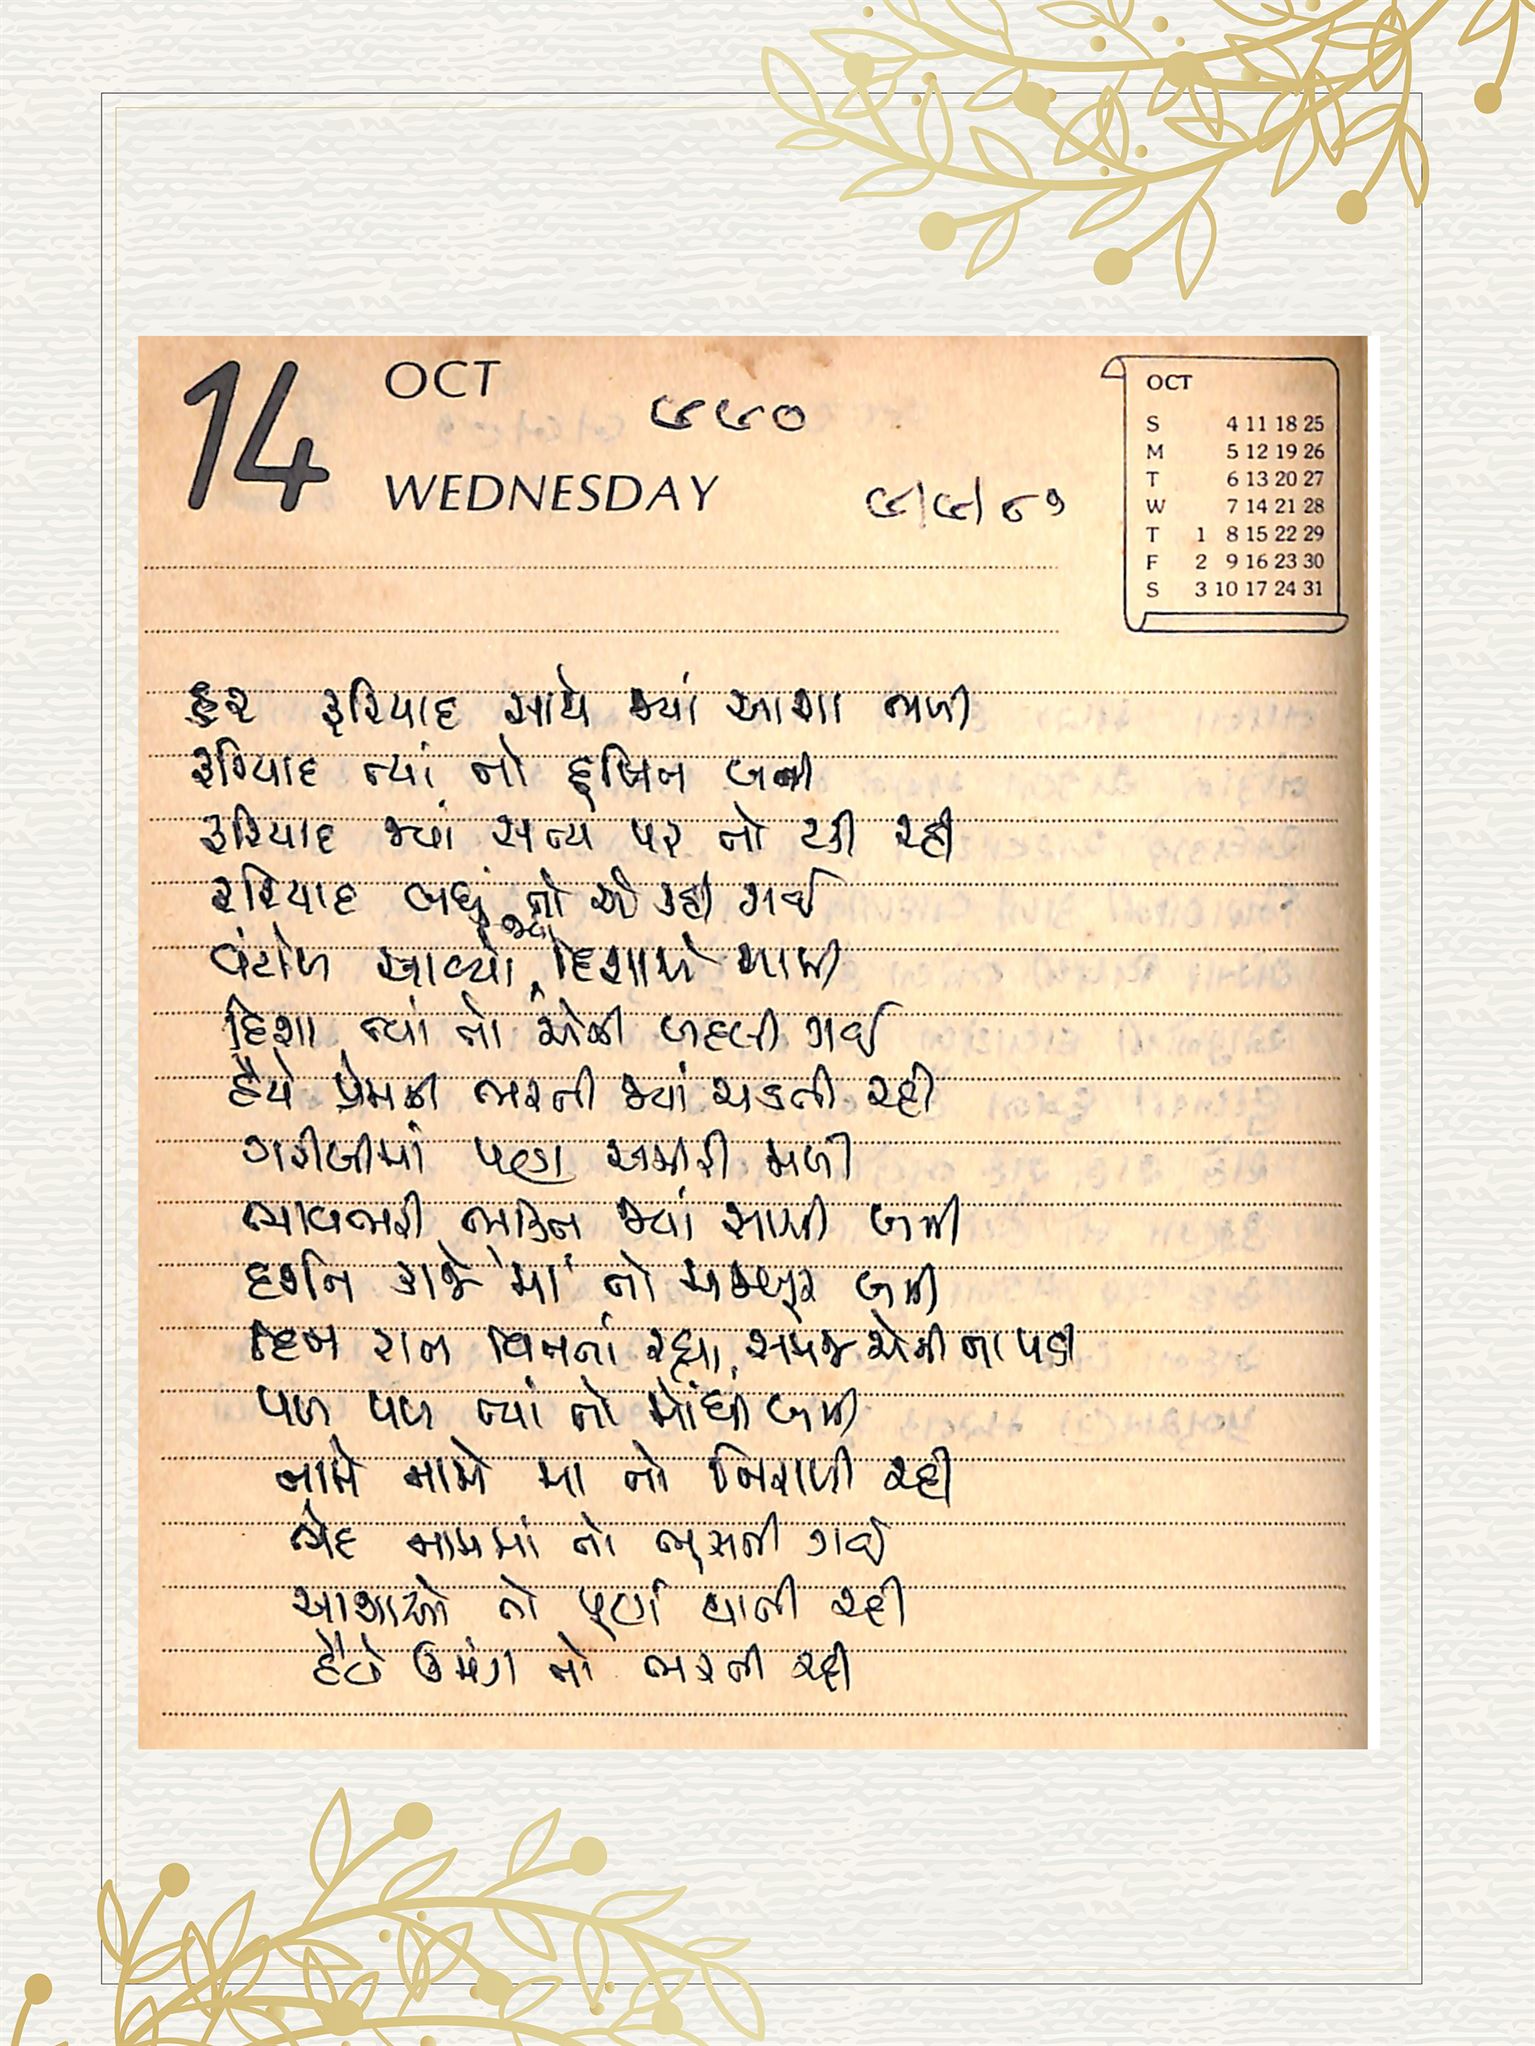 14 OCT
૯૯૦
WEDNESDAY
૯/૯/૮૧
OCT
S 4 11 18 25
M 5 12 19 26
T 6 13 20 27
W 7 14 21 28
T 1 8 15 22 29
F 2 9 16 23 30
S 3 10 17 24 31
હર ફરિયાદ સાથે જ્યાં આશા ભળી
ફરિયાદ ત્યાં તો દૂષિત બની
ફરિયાદ જ્યાં સત્ય પર તો ટકી રહી
ફરિયાદ બધું તો એ કહી ગઈ
વંટોળ આવ્યો જ્યાં દિશાએ માની
દિશા ત્યાં તો એની બદલી ગઈ
હૈયે પ્રેમની ભરતી જ્યાં ચડતી રહી
ગરીબીમાં પણ અમીરી મળી
ભાવભરી ભક્તિ જ્યાં સાચી બની
દર્શન કાજે 'મા' તો મજબૂર બની
દિન રાત વિતતાં રહ્યા, સમજ એની ના પડી
પળ પળ ત્યાં તો મોંઘી બની
નામે નામે મા તો નિરાળી રહી
ભેદ નામમાં તો ભૂસતી ગઈ
આશાઓ તો પૂર્ણ થાતી રહી
હૈયે ઉમંગ તો ભરતી રહી